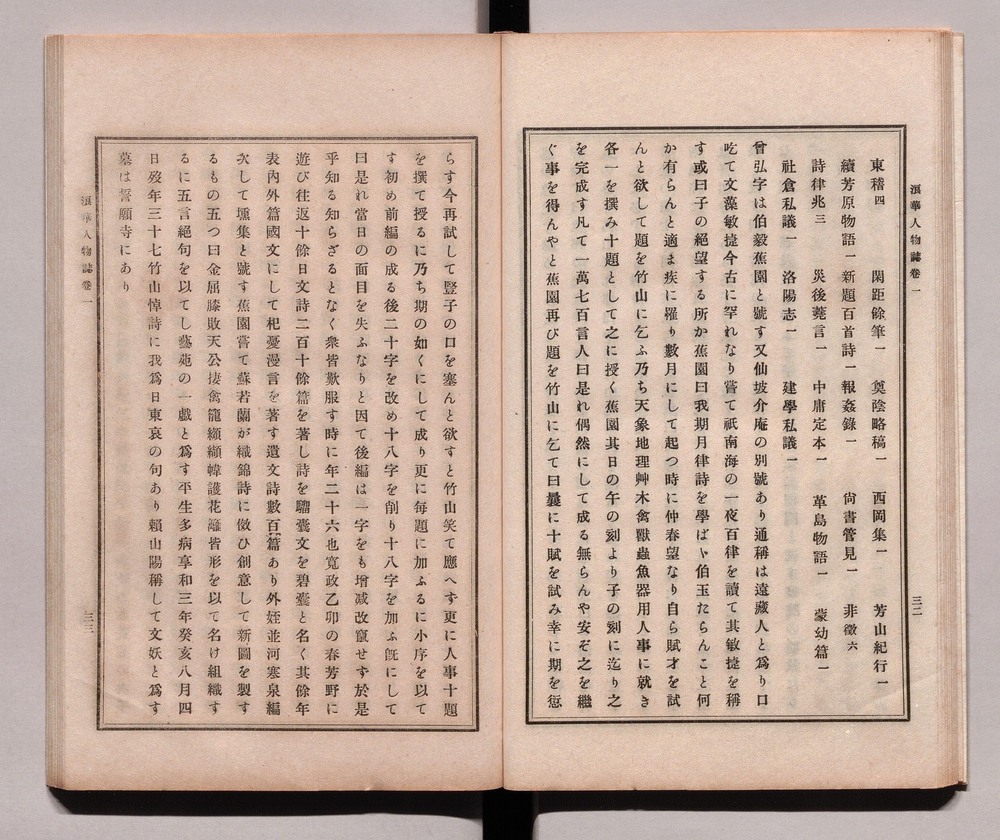 浪華人物誌卷一
三二
東稽四 閑距餘筆一 奠陰略稿一 西岡集一 芳山紀行一
續芳原物語一 新題百首詩一 報姦錄一 尙書管見一 非徵六
詩律兆三 災後蕘言一 中庸定本一 革島物語一 蒙幼篇一
社倉私議一 洛陽志一 建學私議一
曾弘字は伯毅蕉園と號す又仙坡介庵の別號あり通稱は遠藏人と爲り口
吃て文藻敏捷今古に罕れなり甞て祇南海の一夜百律を讀て其敏捷を稱
す或曰子の絕望する所か蕉園曰我期月律詩を學ばゝ伯玉たらんこと何
か有らんと適ま疾に罹り數月にして起つ時に仲春望なり自ら賦才を試
んと欲して題を竹山に乞ふ乃ち天象地理艸木禽獸蟲魚器用人事に就き
各一を撰み十題として之に授く蕉園其日の午の刻より子の刻に迄り之
を完成す凡て一萬七百言人曰是れ偶然にして成る無らんや安ぞ之を繼
ぐ事を得んやと蕉園再び題を竹山に乞て曰曩に十賦を試み幸に期を愆
らす今再試して豎子の口を塞んと欲すと竹山笑て應へす更に人事十題
を撰て授るに乃ち期の如くにして成り更に每題に加ふるに小序を以て
す初め前編の成る後二十字を改め十八字を削り十八字を加ふ旣にして
曰是れ當日の面目を失ふなりと因て後編は一字をも增减改竄せず於是
乎知る知らざるとなく衆皆歎服す時に年二十六也寬政乙卯の春芳野に
遊び往返十餘日文詩二百十餘篇を著し詩を騮囊文を碧囊と名く其餘年
表內外篇國文にして杞憂漫言を著す遺文詩數百篇あり外姪並河寒泉編
次して壎集と號す蕉園嘗て蘇若蘭が織錦詩に傚ひ創意して新圖を製す
るもの五つ曰金屈膝敗天公捿禽籠纈纈幃護花籬皆形を以て名け組織す
るに五言絕句を以てし藝苑の一戲と爲す平生多病享和三年癸亥八月四
日歿年三十七竹山悼詩に我爲日東哀の句あり賴山陽稱して文妖と爲す
墓は誓願寺にあり
浪華人物誌卷一
三三